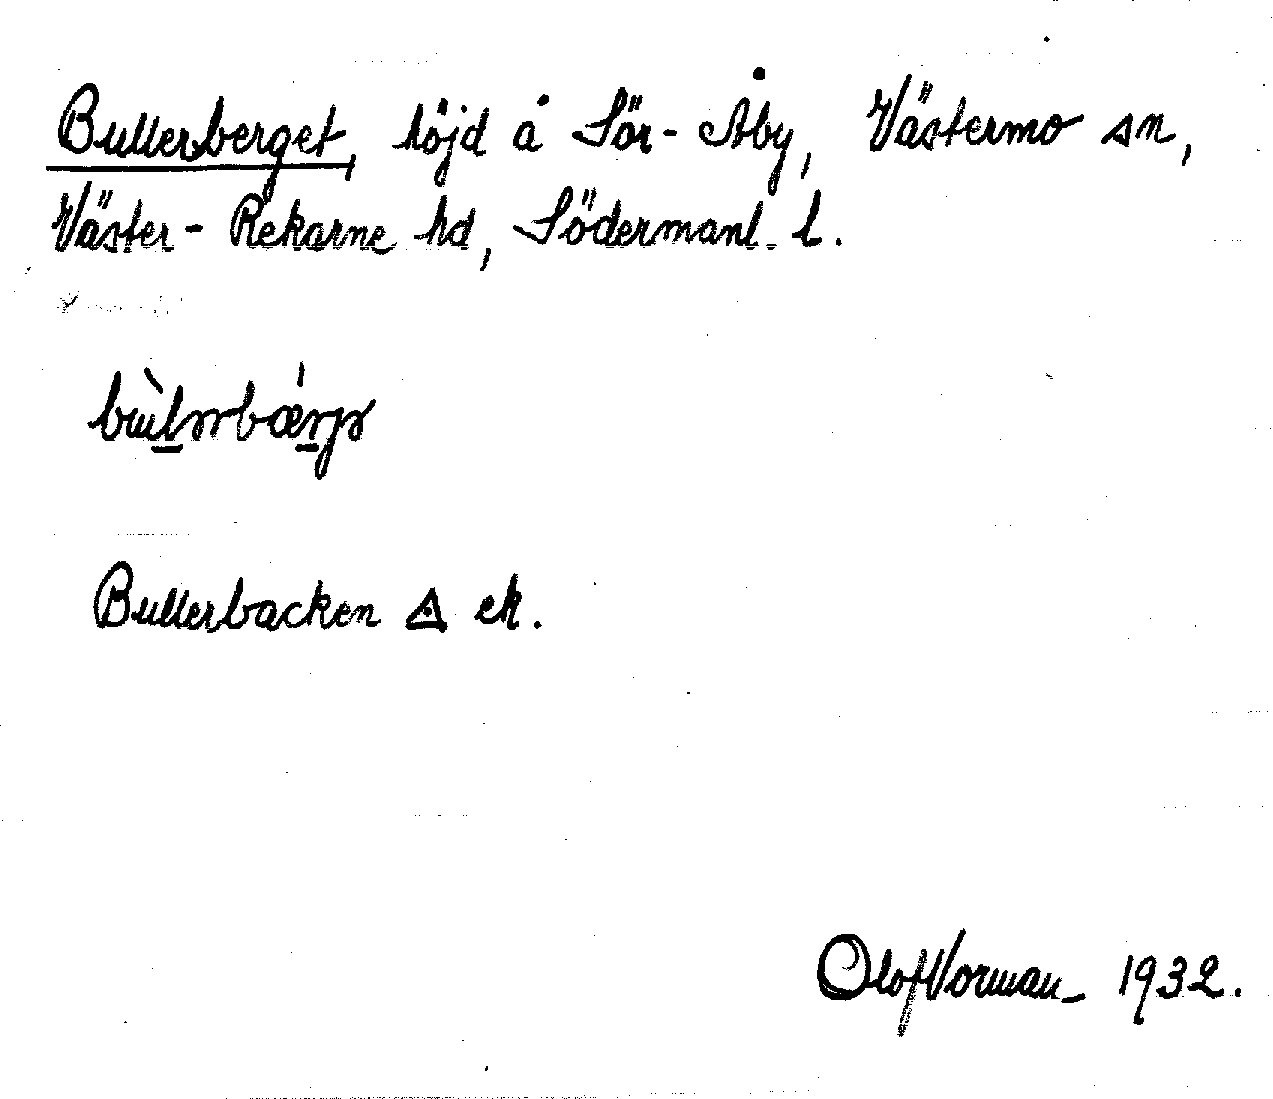 Bullerberget, höjd å Sör-Åby, Västermo sn,
Väster-Rekarne hd, Södermanl. l.
Bullerbacken ek.
Olof Vorman 1932.